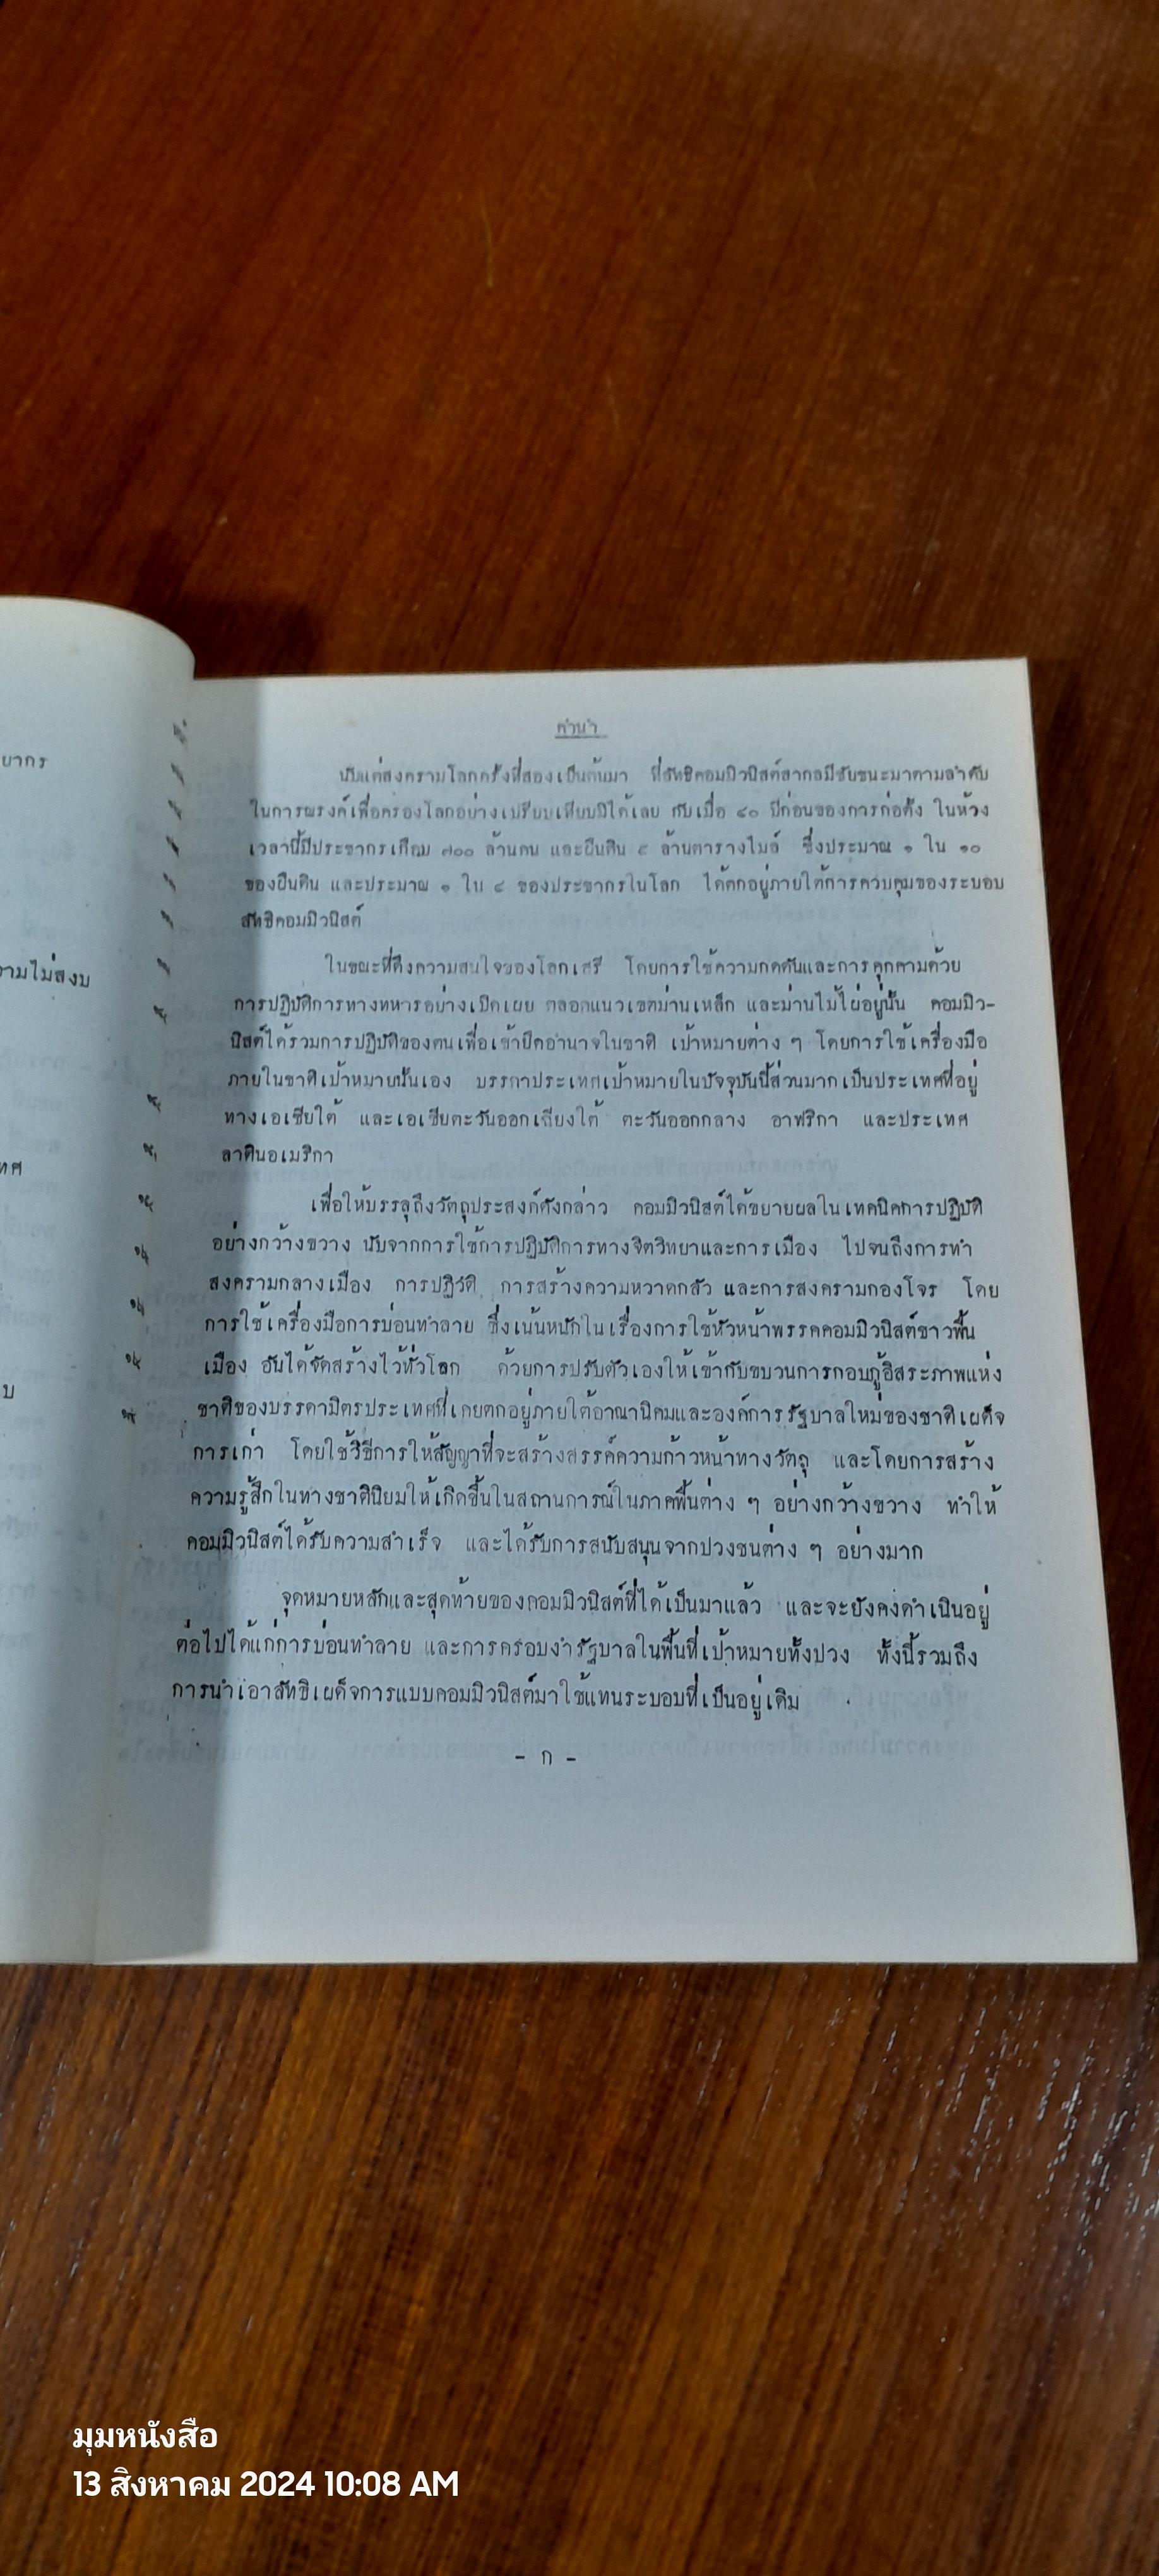 ยากร
วามไม่สงบ
ทศ
บ
คำนำ
นับแต่สงครามโลกครั้งที่สองเป็นต้นมา ที่ลัทธิคอมมิวนิสต์สากลมีชัยชนะมาตามลำดับ
ในการณรงค์เพื่อครองโลกอย่างเปรียบเทียบมิได้เลย กับเมื่อ ๔๐ ปีก่อนของการก่อตั้ง ในห้วง
เวลานี้มีประชากรเกือบ ๗๐๐ ล้านคน และผืนดิน ๕ ล้านตารางไมล์ ซึ่งประมาณ ๑ ใน ๑๐
ของผืนดิน และประมาณ ๑ ใน ๔ ของประชากรในโลก ได้ตกอยู่ภายใต้การควบคุมของระบอบ
ลัทธิคอมมิวนิสต์
ในขณะที่ดึงความสนใจของโลกเสรี โดยการใช้ความกดดันและการคุกคามด้วย
การปฏิบัติการทางทหารอย่างเปิดเผย ตลอดแนวเขตม่านเหล็ก และม่านไม้ไผ่อยู่นั้น คอมมิว-
นิสต์ได้รวมการปฏิบัติของตนเพื่อเข้ายึดอำนาจในชาติ เป้าหมายต่าง ๆ โดยการใช้เครื่องมือ
ภายในชาติเป้าหมายนั้นเอง บรรดาประเทศเป้าหมายในปัจจุบันนี้ส่วนมากเป็นประเทศที่อยู่
ทางเอเซียใต้ และเอเซียตะวันออกเฉียงใต้ ตะวันออกกลาง อาฟริกา และประเทศ
ลาตินอเมริกา
เพื่อให้บรรลุถึงวัตถุประสงค์ดังกล่าว คอมมิวนิสต์ได้ขยายผลในเทคนิคการปฏิบัติ
อย่างกว้างขวาง นับจากการใช้การปฏิบัติการทางจิตวิทยาและการเมือง ไปจนถึงการทำ
สงครามกลางเมือง การปฏิวัติ การสร้างความหวาดกลัว และการสงครามกองโจร โดย
การใช้เครื่องมือการบ่อนทำลาย ซึ่งเน้นหนักในเรื่องการใช้หัวหน้าพรรคคอมมิวนิสต์ชาวพื้น
เมือง อันได้จัดสร้างไว้ทั่วโลก ด้วยการปรับตัวเองให้เข้ากับขบวนการกอบกู้อิสระภาพแห่ง
ชาติของบรรดามิตรประเทศที่เคยตกอยู่ภายใต้อาณานิคมและองค์การรัฐบาลใหม่ของชาติเผด็จ
การเก่า โดยใช้วิธีการให้สัญญาที่จะสร้างสรรค์ความก้าวหน้าทางวัตถุ และโดยการสร้าง
ความรู้สึกในทางชาตินิยมให้เกิดขึ้นในสถานการณ์ในภาคพื้นต่าง ๆ อย่างกว้างขวาง ทำให้
คอมมิวนิสต์ได้รับความสำเร็จ และได้รับการสนับสนุนจากปวงชนต่าง ๆ อย่างมาก
จุดหมายหลักและสุดท้ายของคอมมิวนิสต์ที่ได้เป็นมาแล้ว และจะยังคงดำเนินอยู่
ต่อไปได้แก่การบ่อนทำลาย และการครอบงำรัฐบาลในพื้นที่เป้าหมายทั้งปวง ทั้งนี้รวมถึง
การนำเอาลัทธิเผด็จการแบบคอมมิวนิสต์มาใช้แทนระบอบที่เป็นอยู่เดิม
- ก -
มุมหนังสือ
13 สิงหาคม 2024 10:08 AM